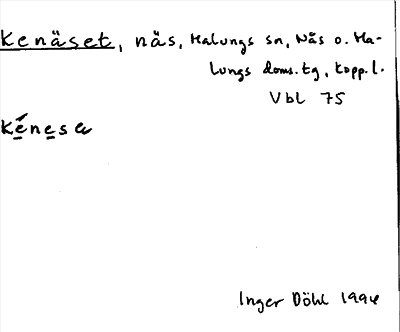 Kenäset, näs, Malungs sn, Nås o. Ma-
lungs doms.tg, Kopp.l.
Vbl 75
Kénesa
Inger Döhl 1994